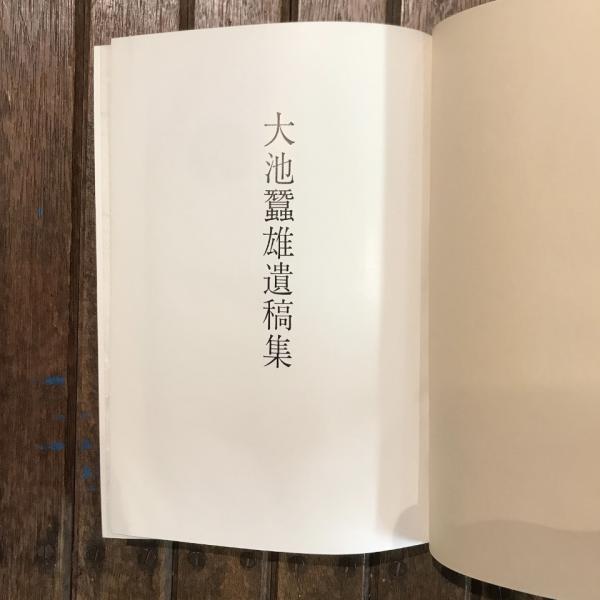 大池蠶雄遺稿集